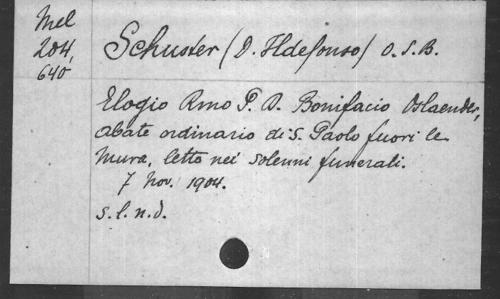 Mel
204,
640
Schuster (D. Ildefonso) O.S.B.
Elogio Rmo P. D. Bonifacio Oslaender,
abate ordinario di S. Paolo fuori le
mura, letto nei solenni funerali.
7 Nov. 1904.
s.l.n.d.